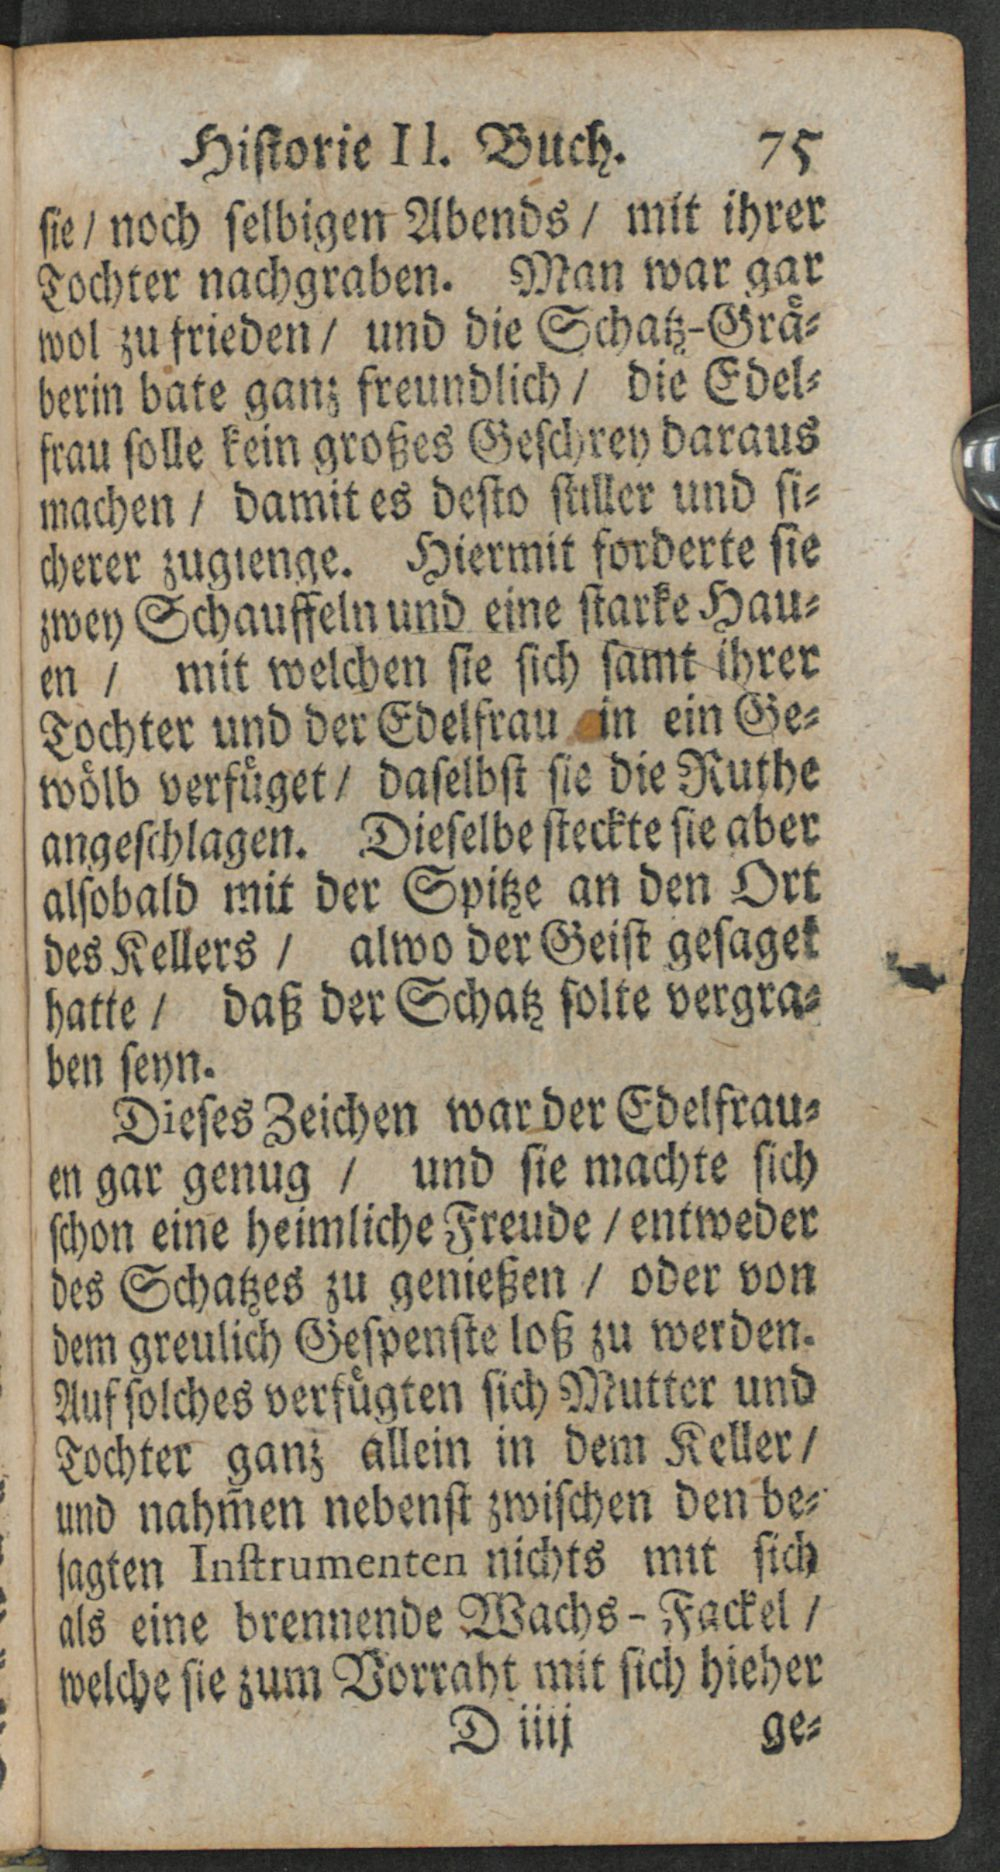 Historie II. Buch. 75
sie / noch selbigen Abends / mit ihrer
Tochter nachgraben. Man war gar
wol zu frieden / und die Schatz-Grä-
berin bate ganz freundlich / die Edel-
frau solle kein großes Geschrey daraus
machen / damit es desto stiller und si-
cherer zugienge. Hiermit forderte sie
zwey Schauffeln und eine starke Hau-
en / mit welchen sie sich samt ihrer
Tochter und der Edelfrau in ein Ge-
wölb verfüget / daselbst sie die Ruthe
angeschlagen. Dieselbe steckte sie aber
alsobald mit der Spitze an den Ort
des Kellers / alwo der Geist gesaget
hatte / daß der Schatz solte vergra-
ben seyn.
Dieses Zeichen war der Edelfrau-
en gar genug / und sie machte sich
schon eine heimliche Freude / entweder
des Schatzes zu genießen / oder von
dem greulich Gespenste loß zu werden.
Auf solches verfügten sich Mutter und
Tochter ganz allein in dem Keller /
und nahm̃en nebenst zwischen den be-
sagten Instrumenten nichts mit sich
als eine brennende Wachs-Fackel /
welche sie zum Vorraht mit sich hieher
D iiij ge-